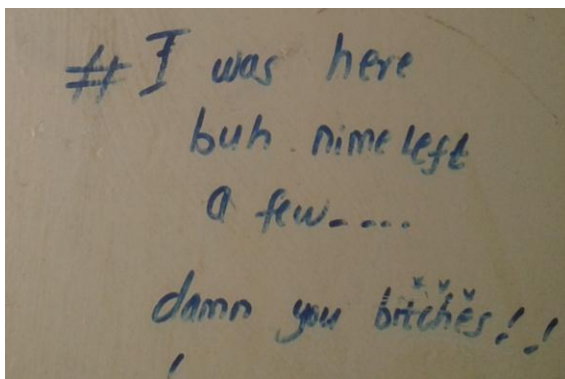 # I was here
buh nime left
a few-....
damn you bitches!!
!